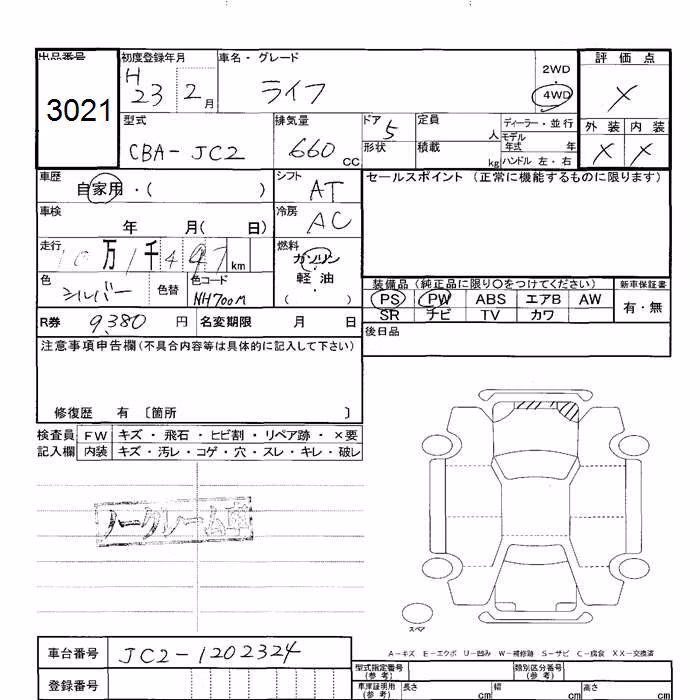 出品番号 初度登録年月 車名・グレード 評価点
3021 H 23 2月 ライフ 2WD ・ 4WD ×
型式 排気量 ドア 5 定員 人 ディーラー・並行 外装 内装
CBA-JC2 660cc 形状 積載 kg モデル年式 年 × ×
ハンドル 左・右
車歴 自家用・( ) シフト AT セールスポイント(正常に機能するものに限ります)
車検 年 月( 日) 冷房 AC
走行 10万1千497km 燃料 ガソリン 軽油 ( )
色 シルバー 色替 色コード NH700M 装備品(純正品に限り○をつけてください) 新車保証書
PS PW ABS エアB AW 有・無
R券 9,380円 名変期限 月 日 SR ナビ TV カワ
後日品
注意事項申告欄(不具合内容等は具体的に記入して下さい)
修復歴 有 〔箇所 〕
検査員 FW キズ・飛石・ヒビ割・リペア跡・×要
記入欄 内装 キズ・汚レ・コゲ・穴・スレ・キレ・破レ
ノークレーム車
スペア
A-キズ E-エクボ U-凹み W-補修跡 S-サビ C-腐食 XX-交換済
車台番号 JC2-1202324 型式指定番号(参考) 類別区分番号(参考)
登録番号 車庫証明用(参考) 長さ cm 幅 cm 高さ cm